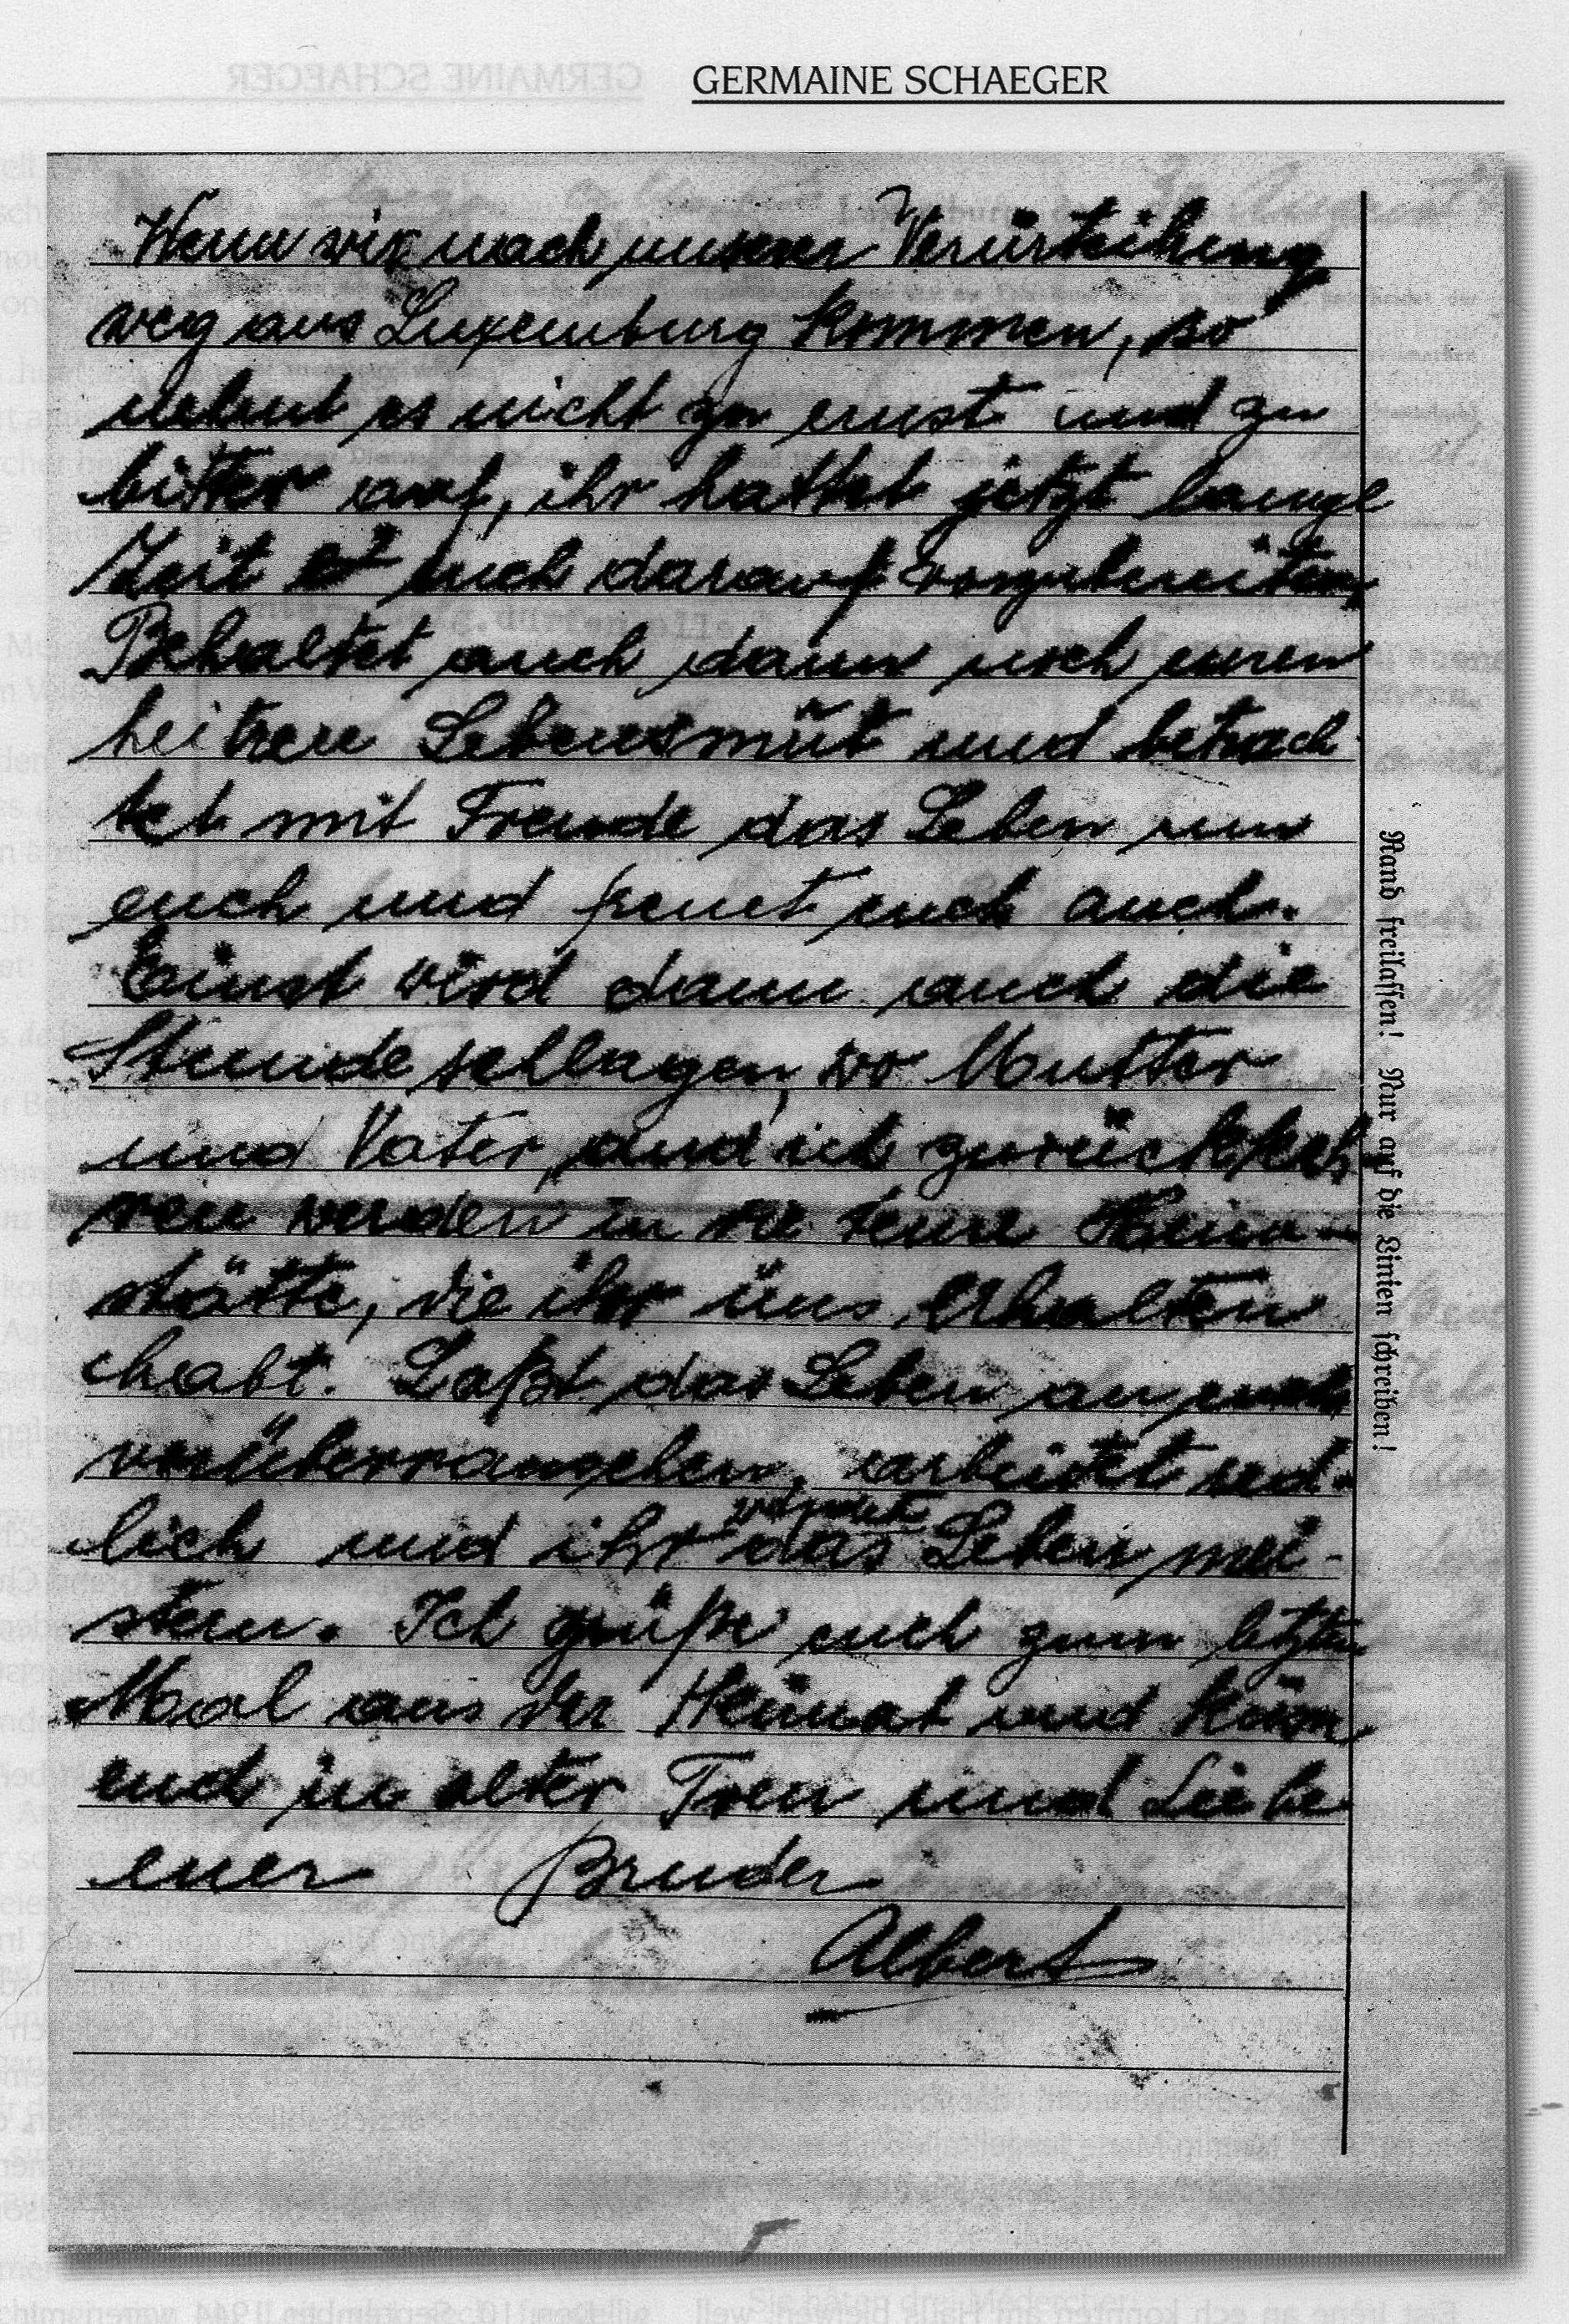 GERMAINE SCHAEGER
Wenn wir nach unserer Verurteilung
weg aus Luxemburg kommen, so
nehmt es nicht zu ernst und zu
bitter auf, ihr hattet jetzt lange
Zeit euch darauf vorzubereiten,
Behaltet auch dann noch euren
heitren Lebensmut und betrach-
tet mit Freude das Leben um
euch und freuet euch auch.
Einst wird dann auch die
Stunde schlagen, wo Mutter
und Vater und ich zurückkeh-
ren werden in die teure Heim-
stätte, die ihr uns erhalten
habt. Laßt das Leben an euch
vorüberrauschen, arbeitet red-
lich und ihr werdet das Leben mei-
stern. Ich grüße euch zum letzten
Mal aus der Heimat und
euch in alter Treu und Liebe
euer Bruder
Albert
Rand freilassen! Nur auf die Linien schreiben!